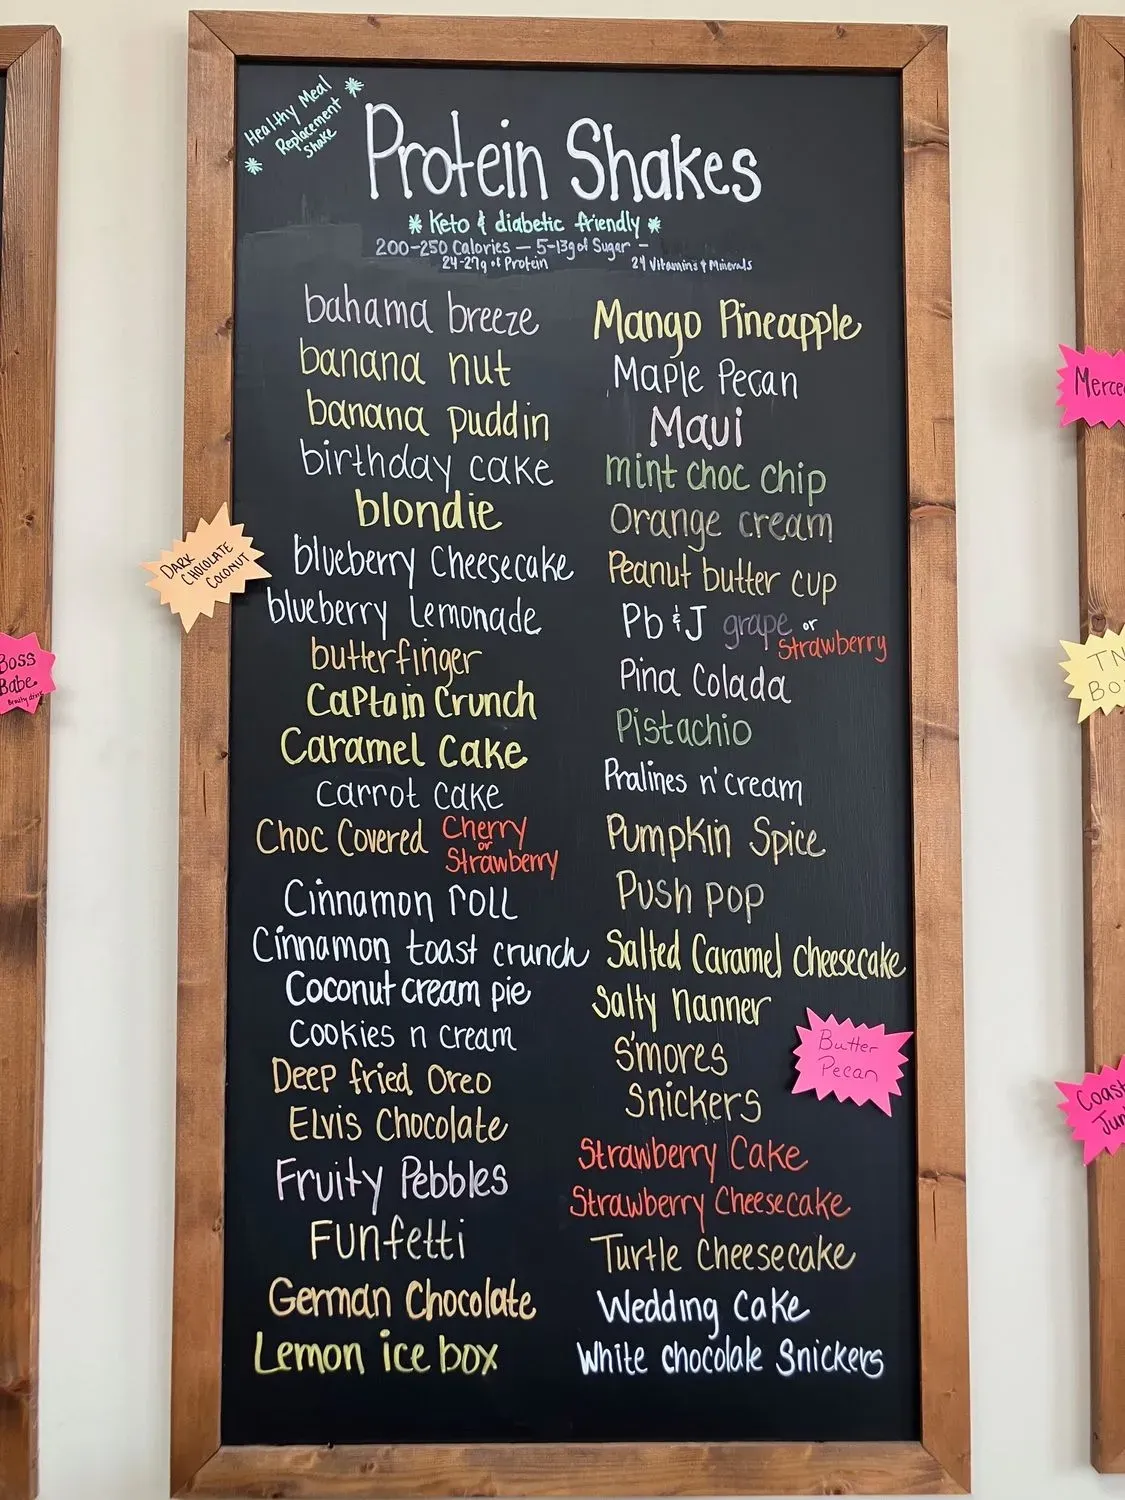 Healthy Meal
Replacement
Shake
Protein Shakes
Keto & diabetic friendly
200-250 Calories — 5-13g of Sugar -
24-27g of Protein
24 Vitamins & Minerals
bahama breeze
banana nut
banana puddin
birthday cake
blondie
blueberry Cheesecake
blueberry Lemonade
butterfinger
Captain Crunch
Caramel Cake
carrot cake
Choc Covered Cherry
or
Strawberry
Cinnamon roll
Cinnamon toast crunch
Coconut cream pie
Cookies n cream
Deep fried Oreo
Elvis Chocolate
Fruity Pebbles
Funfetti
German Chocolate
Lemon ice box
Mango Pineapple
Maple Pecan
Maui
mint choc chip
Orange cream
Peanut butter cup
Pb & J grape or
Strawberry
Pina Colada
Pistachio
Pralines n' cream
Pumpkin Spice
Push pop
Salted Caramel cheesecake
Salty Nanner
S'mores
Snickers
Strawberry Cake
Strawberry Cheesecake
Turtle Cheesecake
Wedding Cake
White chocolate Snickers
DARK
CHOCOLATE
COCONUT
Butter
Pecan
Boss
Babe
Merce
TN
Bo
Coast
Jun